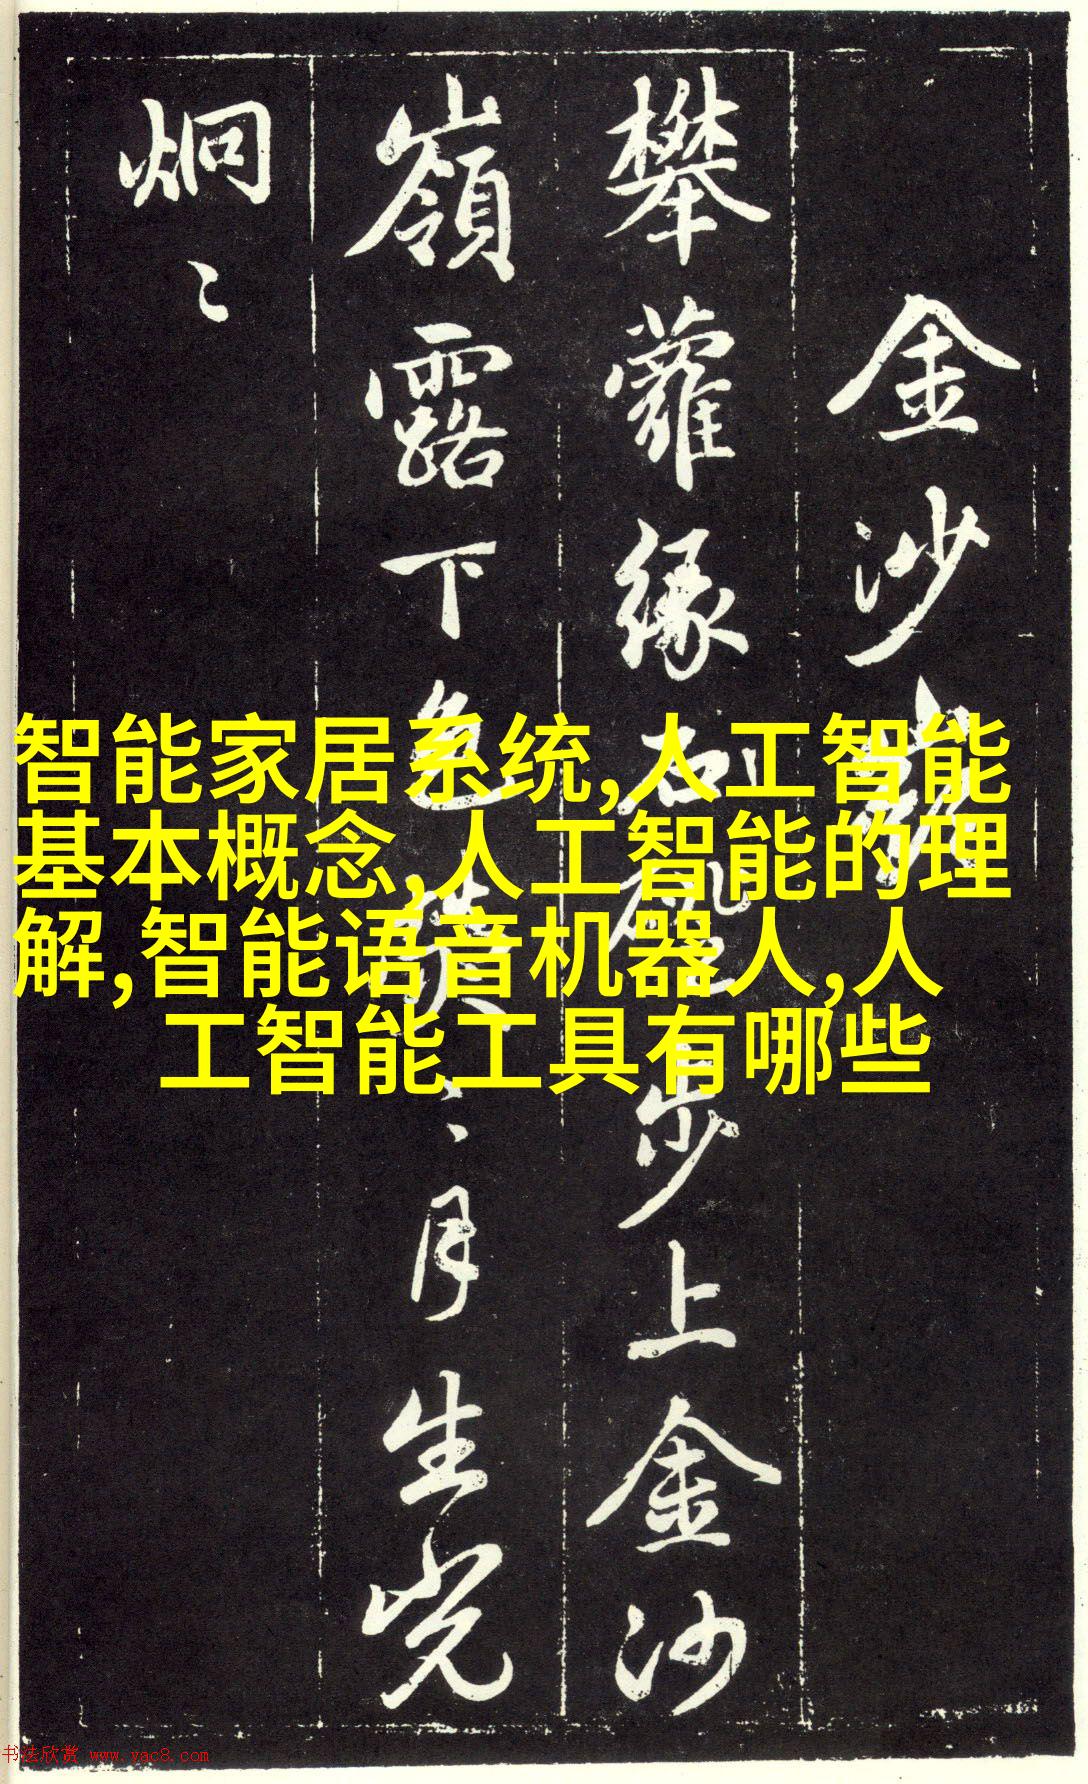 金沙嶺
攀蘿緣石步上金沙
嶺露下色〻月生光
炯〻
智能家居系统,人工智能
基本概念,人工智能的理
解,智能语音机器人,人
工智能工具有哪些
书法欣赏 www.yac8.com